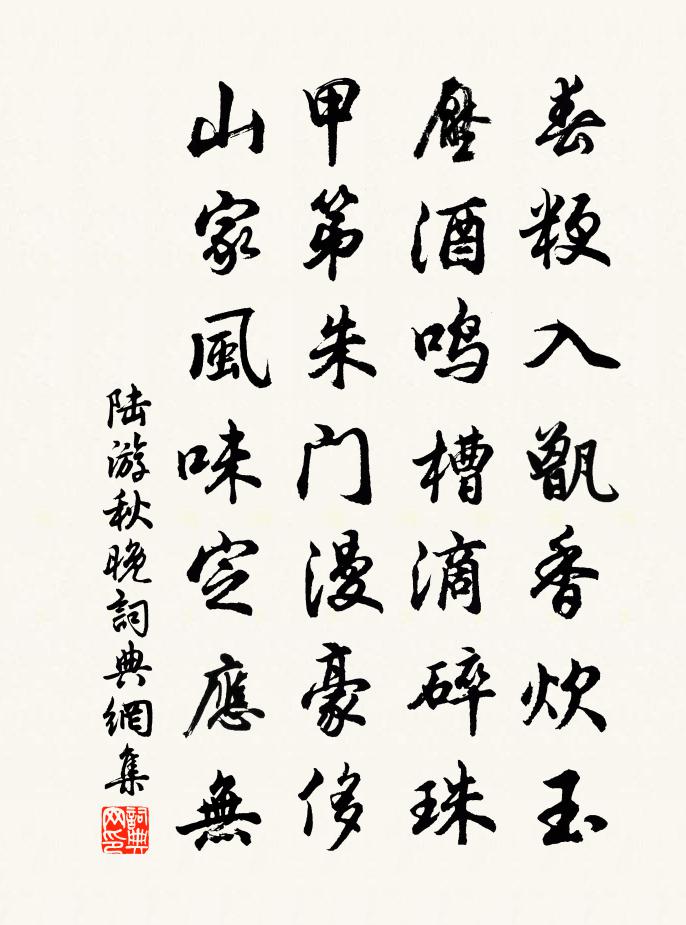 舂粳入甑香炊玉
壓酒鸣槽滴碎珠
甲第朱门漫豪侈
山家風味定應無
陆游秋晚詞典網集
詞典网印